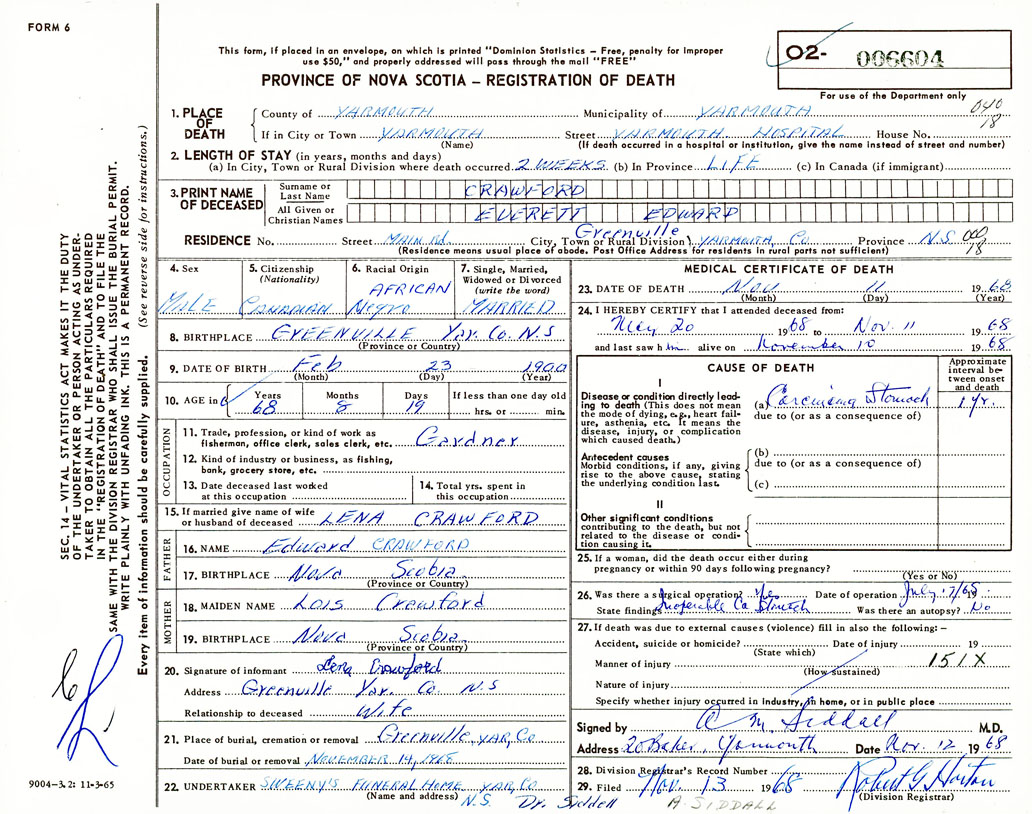 FORM 6
This form, if placed in an envelope, on which is printed "Dominion Statistics – Free, penalty for improper
use $50," and properly addressed will pass through the mail "FREE"
PROVINCE OF NOVA SCOTIA – REGISTRATION OF DEATH
O2- 006604
For use of the Department only
1. PLACE OF DEATH
County of YARMOUTH Municipality of YARMOUTH 040
If in City or Town YARMOUTH Street YARMOUTH HOSPITAL House No. 18
(Name) (If death occurred in a hospital or institution, give the name instead of street and number)
2. LENGTH OF STAY (in years, months and days)
(a) In City, Town or Rural Division where death occurred 2 WEEKS (b) In Province LIFE (c) In Canada (if immigrant)
3. PRINT NAME OF DECEASED
Surname or Last Name CRAWFORD
All Given or Christian Names EVERETT EDWARD
Greenville
RESIDENCE No. Street MAIN Rd. City, Town or Rural Division YARMOUTH, Co. Province N.S. 18
(Residence means usual place of abode. Post Office Address for residents in rural parts not sufficient)
4. Sex
MALE
5. Citizenship
(Nationality)
CANADIAN
6. Racial Origin
AFRICAN
Negro
7. Single, Married,
Widowed or Divorced
(write the word)
MARRIED
8. BIRTHPLACE GREENVILLE Yar. Co. N.S
(Province or Country)
9. DATE OF BIRTH Feb 23 1900
(Month) (Day) (Year)
10. AGE in
Years Months Days If less than one day old
68 8 19 hrs. or min.
OCCUPATION
11. Trade, profession, or kind of work as
fisherman, office clerk, sales clerk, etc. Gardner
12. Kind of industry or business, as fishing,
bank, grocery store, etc.
13. Date deceased last worked
at this occupation
14. Total yrs. spent in
this occupation
15. If married give name of wife
or husband of deceased LENA CRAWFORD
FATHER
16. NAME Edward CRAWFORD
17. BIRTHPLACE Nova Scobia.
(Province or Country)
MOTHER
18. MAIDEN NAME Lois Crawford
19. BIRTHPLACE Nova Scobia.
(Province or Country)
20. Signature of informant Lena Crawford
Address Greenville Yar. Co. N.S
Relationship to deceased Wife
21. Place of burial, cremation or removal Greenville, YAR, Co
Date of burial or removal NOVEMBER 14, 1968
22. UNDERTAKER SWEENY'S FUNERAL HOME YAR, Co
(Name and address) N.S.
Dr. Siddell
MEDICAL CERTIFICATE OF DEATH
23. DATE OF DEATH Nov 11 1968
(Month) (Day) (Year)
24. I HEREBY CERTIFY that I attended deceased from:
May 20 1968 to Nov. 11 1968
and last saw him alive on November 10 1968
CAUSE OF DEATH
Approximate
interval be-
tween onset
and death
I
Disease or condition directly lead-
ing to death (This does not mean
the mode of dying, e.g., heart fail-
ure, asthenia, etc. It means the
disease, injury, or complication
which caused death.)
(a) Carcinoma Stomach 1 yr.
due to (or as a consequence of)
Antecedent causes
Morbid conditions, if any, giving
rise to the above cause, stating
the underlying condition last.
(b)
due to (or as a consequence of)
(c)
II
Other significant conditions
contributing to the death, but not
related to the disease or condi-
tion causing it.
25. If a woman, did the death occur either during
pregnancy or within 90 days following pregnancy?
(Yes or No)
26. Was there a surgical operation? Yes Date of operation July 7/68 19
State findings Inoperable Ca Stomach Was there an autopsy? No
27. If death was due to external causes (violence) fill in also the following: –
Accident, suicide or homicide? Date of injury 19
(State which)
Manner of injury 151X
(How sustained)
Nature of injury
Specify whether injury occurred in industry, in home, or in public place
Signed by A M. Siddall M.D.
Address 20 Baker, Yarmouth Date Nov. 12 1968
28. Division Registrar's Record Number
29. Filed Nov. 13 1968 Robert G Horton
(Division Registrar)
A SIDDALL
SEC. 14 – VITAL STATISTICS ACT MAKES IT THE DUTY
OF THE UNDERTAKER OR PERSON ACTING AS UNDER-
TAKER TO OBTAIN ALL THE PARTICULARS REQUIRED
IN THE "REGISTRATION OF DEATH" AND TO FILE THE
SAME WITH THE DIVISION REGISTRAR WHO SHALL ISSUE THE BURIAL PERMIT.
WRITE PLAINLY WITH UNFADING INK. THIS IS A PERMANENT RECORD.
Every item of information should be carefully supplied. (See reverse side for instructions.)
9004-3.2: 11-3-65